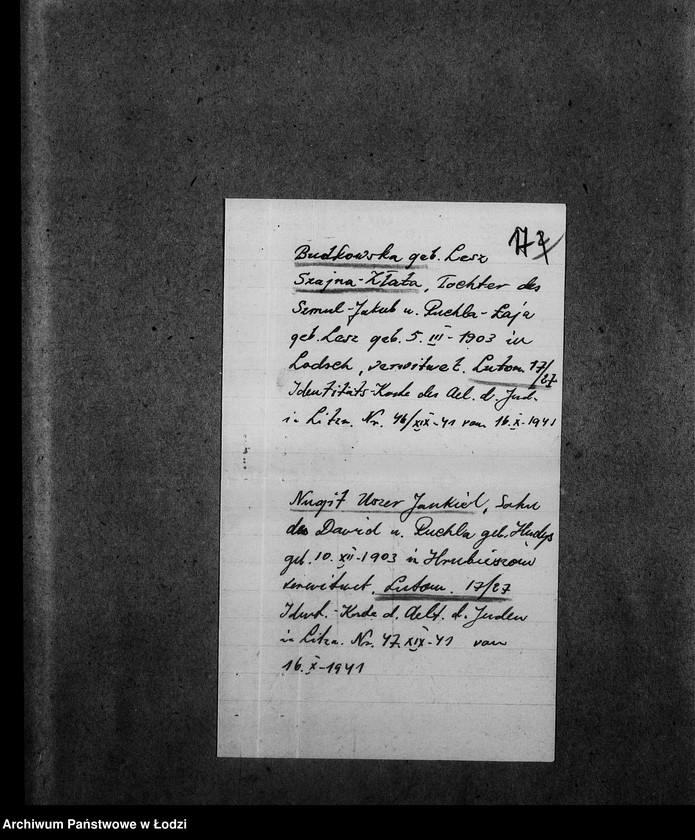 177
Budkowska geb. Lesz
Szajna-Złata, Tochter des
Szmul-Jakub u. Ruchla-Łaja
geb. Lesz geb. 5. III-1903 in
Lodsch, verwitwet. Lutom. 17/27
Identitäts-Karte des Aelt. d. Jud.
in Litzm. Nr. 46/XIX-41 vom 16.X-1941
Uszer Jankiel, Sohn
des Dawid u. Ruchla geb.
geb. 10. XII-1903 in Hrubieszow
verwitwet. Lutom. 17/27
Ident.-Karte d. Aelt. d. Juden
in Litzm. Nr. 47.XIX-41 vom
16.X-1941
Archiwum Państwowe w Łodzi